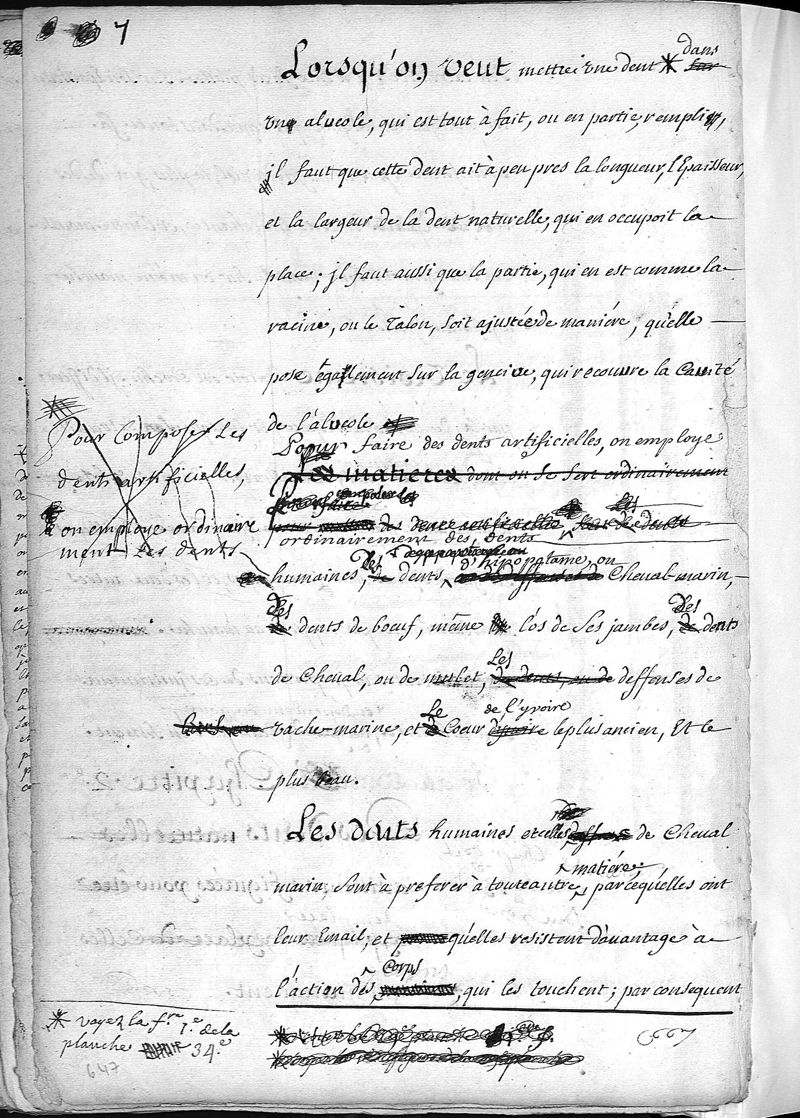 7
Lorsqu'on veut mettre une dent * dans
un alueole, qui est tout à fait, ou en partie, rempli,
jl faut que cette dent ait à peu pres la longueur, l'Epaisseur,
et la largeur de la dent naturelle, qui en occupoit la
place; jl faut aussi que la partie, qui en est comme la
racine, ou le Talon, soit ajustée de maniére, qu'elle
pose également sur la gencive, qui recouvre la Cavité
de l'alveole
Pour composer Les
dents artificielles,
on employe ordinaire
ment Les dents
Pour faire des dents artificielles, on employe
matieres dont on se sert ordinairement
des dents artificielles
Les
ordinairement des dents
d'hipopotame, ou
humaines, Les dents Cheval-marin,
des Les
dents de boeuf, même l'os de ses jambes, dents
Les
de Cheval, ou de mulet, de dents, ou de deffenses de
Le de l'yvoire
vache-marine, et Coeur d'yvoire le plus ancien, Et le
plus beau.
Les dents humaines et celles de Cheval
matiére
marin, sont à preferer à toute autre, parcequ'elles ont
leur Email, et qu'elles resistent d'avantage à
corps
l'action des , qui les touchent; par consequent
* voyez la f.re 1.e de la
planche 34.e
647
667